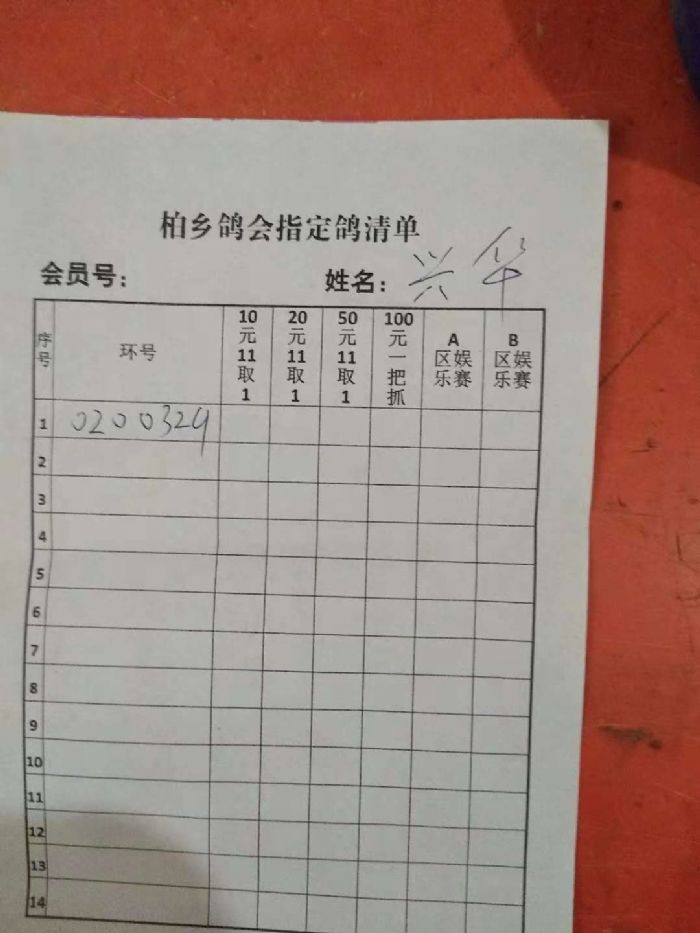 柏乡鸽会指定鸽清单
会员号： 姓名：兴华
序号 环号 10元11取1 20元11取1 50元11取1 100元一把抓 A区娱乐赛 B区娱乐赛
1 0200329
2
3
4
5
6
7
8
9
10
11
12
13
14